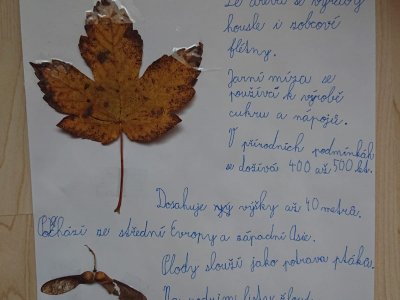 Ze dřeva se vyrábějí
housle i zobcové
flétny.
Jarní míza se
používá k výrobě
cukru a nápojů.
V přírodních podmínkách
se dožívá 400 až 500 let.
Dosahuje výšky až 40 metrů.
Pochází ze střední Evropy a západní Asie.
Plody slouží jako potrava ptáků.
Na podzim listy žloutnou